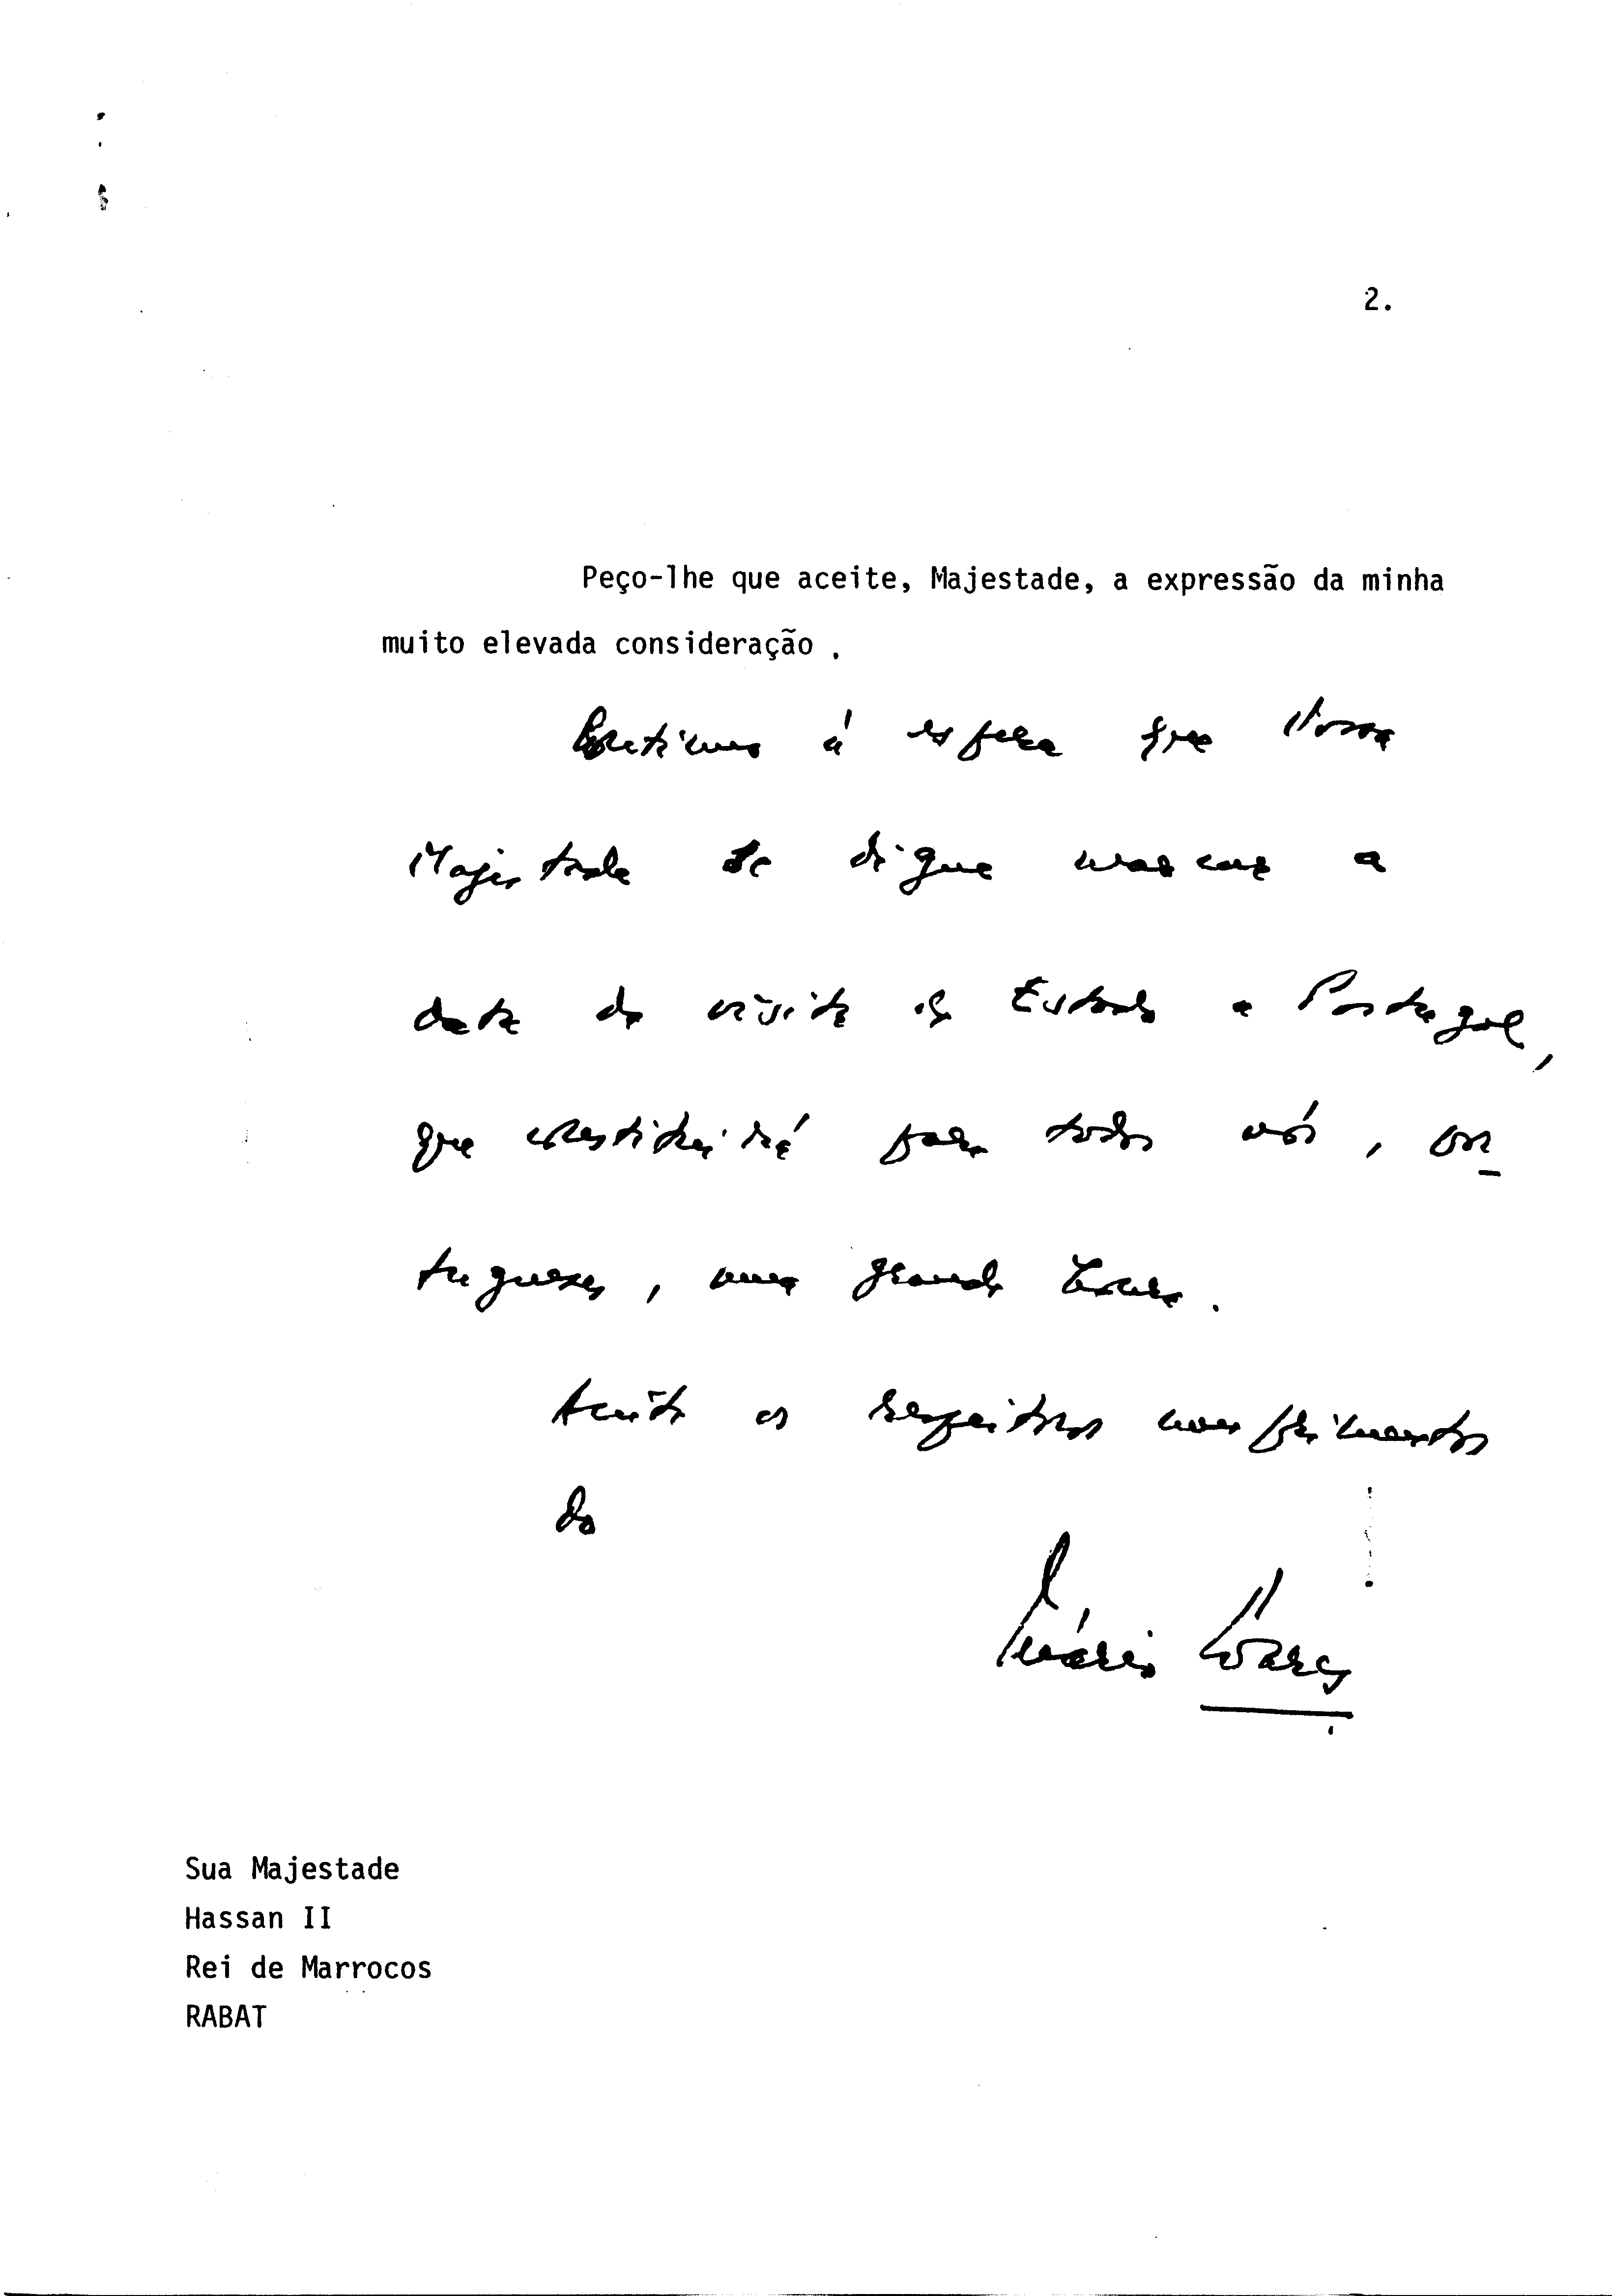 2.
Peço-lhe que aceite, Majestade, a expressão da minha
muito elevada consideração .
à espera que Vossa
Majestade se digne marcar a
data da visita de Estado a Portugal,
que constituirá para todos nós, por
tugueses, uma grande honra.
Aceite os respeitosos cumprimentos
do
Mário Soares
Sua Majestade
Hassan II
Rei de Marrocos
RABAT